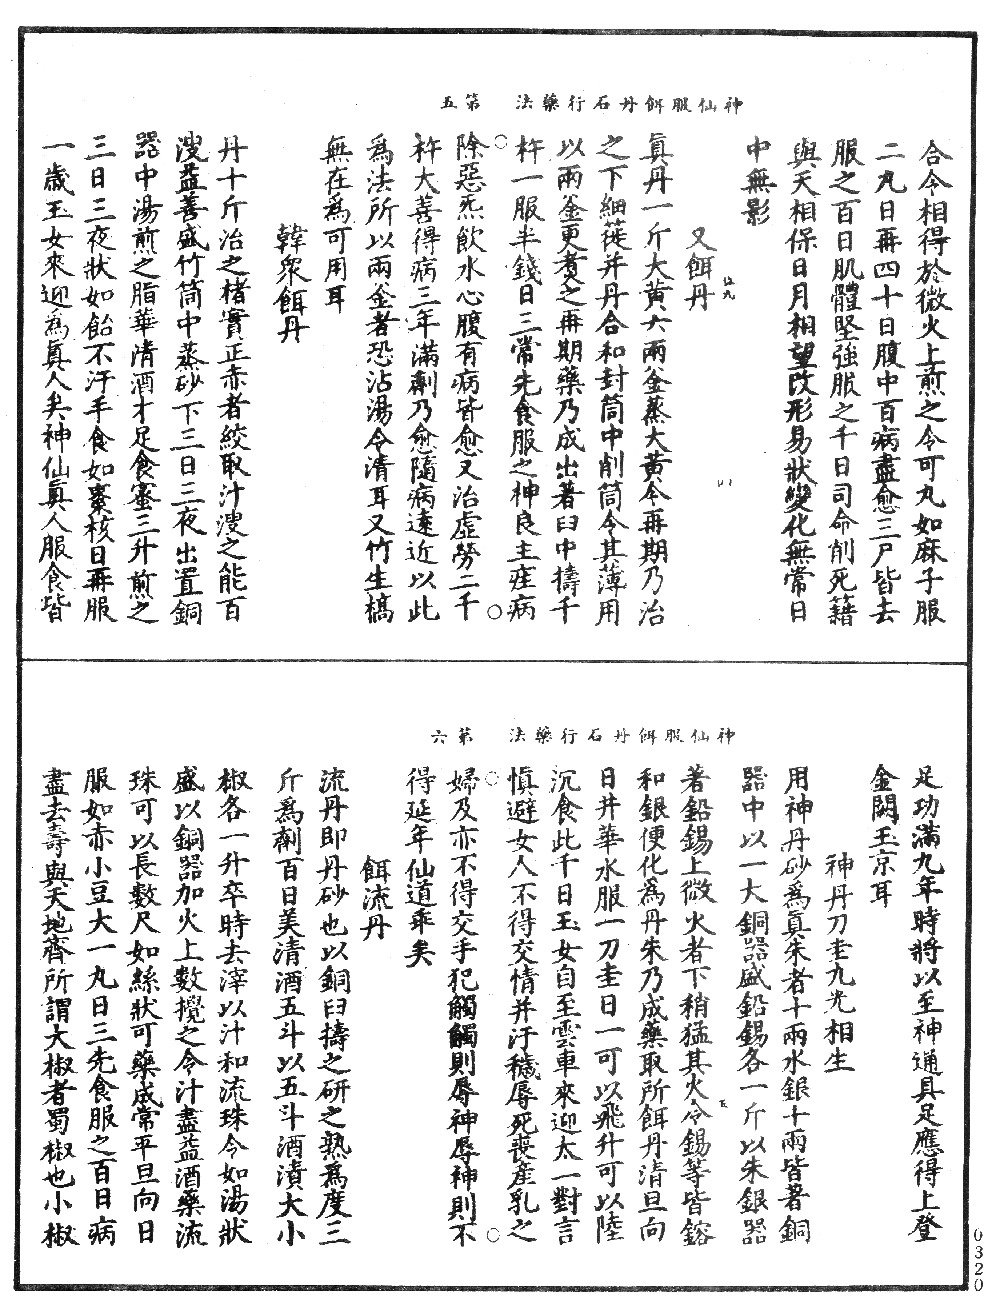 神仙服餌丹石行藥法　第五
合令相得於微火上煎之令可丸如麻子服
二丸日再四十日腹中百病盡愈三尸皆去
服之百日肌體堅強服之千日司命削死籍
與天相保日月相望改形易狀變化無常日
中無影
又餌丹
真丹一斤大黃六兩釜蒸大黃令再期乃治
之下細簁并丹合和封筒中削筒令其薄用
以兩釜更煑之再期藥乃成出著臼中擣千
杵一服半錢日三常先食服之神良主疰病
除惡炁飲水心腹有病皆愈又治虛勞二千
杵大善得病三年滿劑乃愈隨病遠近以此
爲法所以兩釜者恐沾湯令清耳又竹生槁
無在爲可用耳
韓眾餌丹
丹十斤冶之楮實正赤者絞取汁溲之能百
溲益善盛竹筒中蒸砂下三日三夜出置銅
器中湯煎之脂華清酒才足食蜜三升煎之
三日三夜狀如飴不汙手食如棗核日再服
一歲玉女來迎爲真人矣神仙真人服食皆
神仙服餌丹石行藥法　第六
足功滿九年時將以至神通具足應得上登
金闕玉京耳
神丹刀圭九光相生
用神丹砂爲真朱者十兩水銀十兩皆著銅
器中以一大銅器盛鉛錫各一斤以朱銀器
著鉛錫上微火者下稍猛其火令錫等皆鎔
和銀便化爲丹朱乃成藥取所餌丹清旦向
日井華水服一刀圭日一可以飛升可以陸
沉食此千日玉女自至雲車來迎太一對言
慎避女人不得交情并汙穢辱死喪產乳之
婦及亦不得交手犯觸觸則辱神辱神則不
得延年仙道乖矣
餌流丹
流丹即丹砂也以銅臼擣之研之熟爲度三
斤爲劑百日美清酒五斗以五斗酒漬大小
椒各一升卒時去滓以汁和流珠令如湯狀
盛以銅器加火上數攪之令汁盡益酒藥流
珠可以長數尺如絲狀可藥成常平旦向日
服如赤小豆大一丸日三先食服之百日病
盡去壽與天地齊所謂大椒者蜀椒也小椒
0320